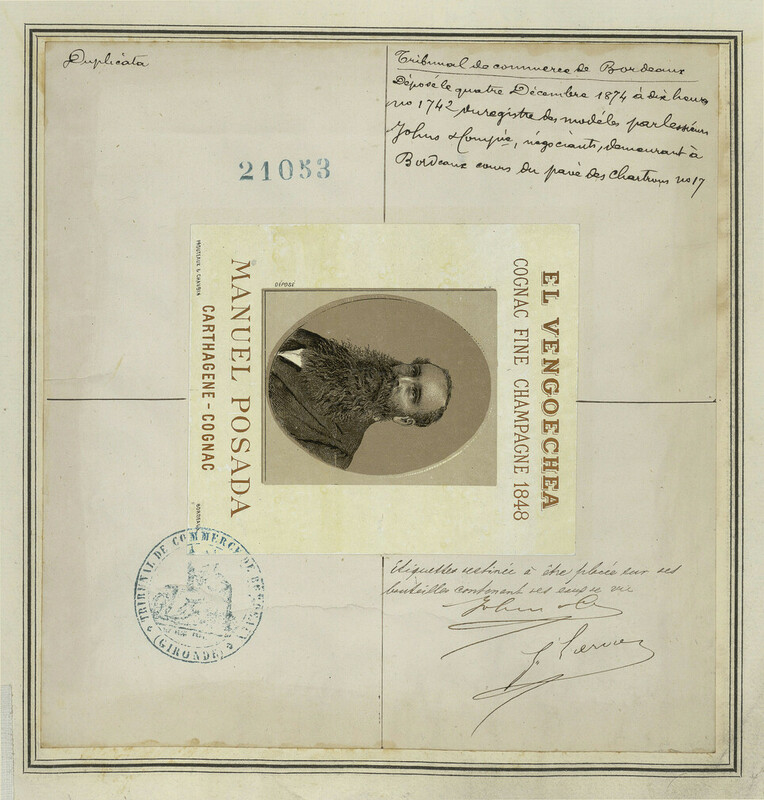 Duplicata
Tribunal de commerce de Bordeaux
Déposé le quatre Décembre 1874 à dix heures
no 1742 du registre des modèles par les sieurs
Johns & Compie, négociants, demeurant à
Bordeaux cours du pavé des Chartrons no 17
21053
EL VENGOECHEA
COGNAC FINE CHAMPAGNE 1848
MANUEL POSADA
CARTHAGENE - COGNAC
BORDEAUX
TRIBUNAL DE COMMERCE DE BORDEAUX
(GIRONDE)
Etiquettes destinée à être placée sur des
bouteilles contenant des eaux de vie
John &